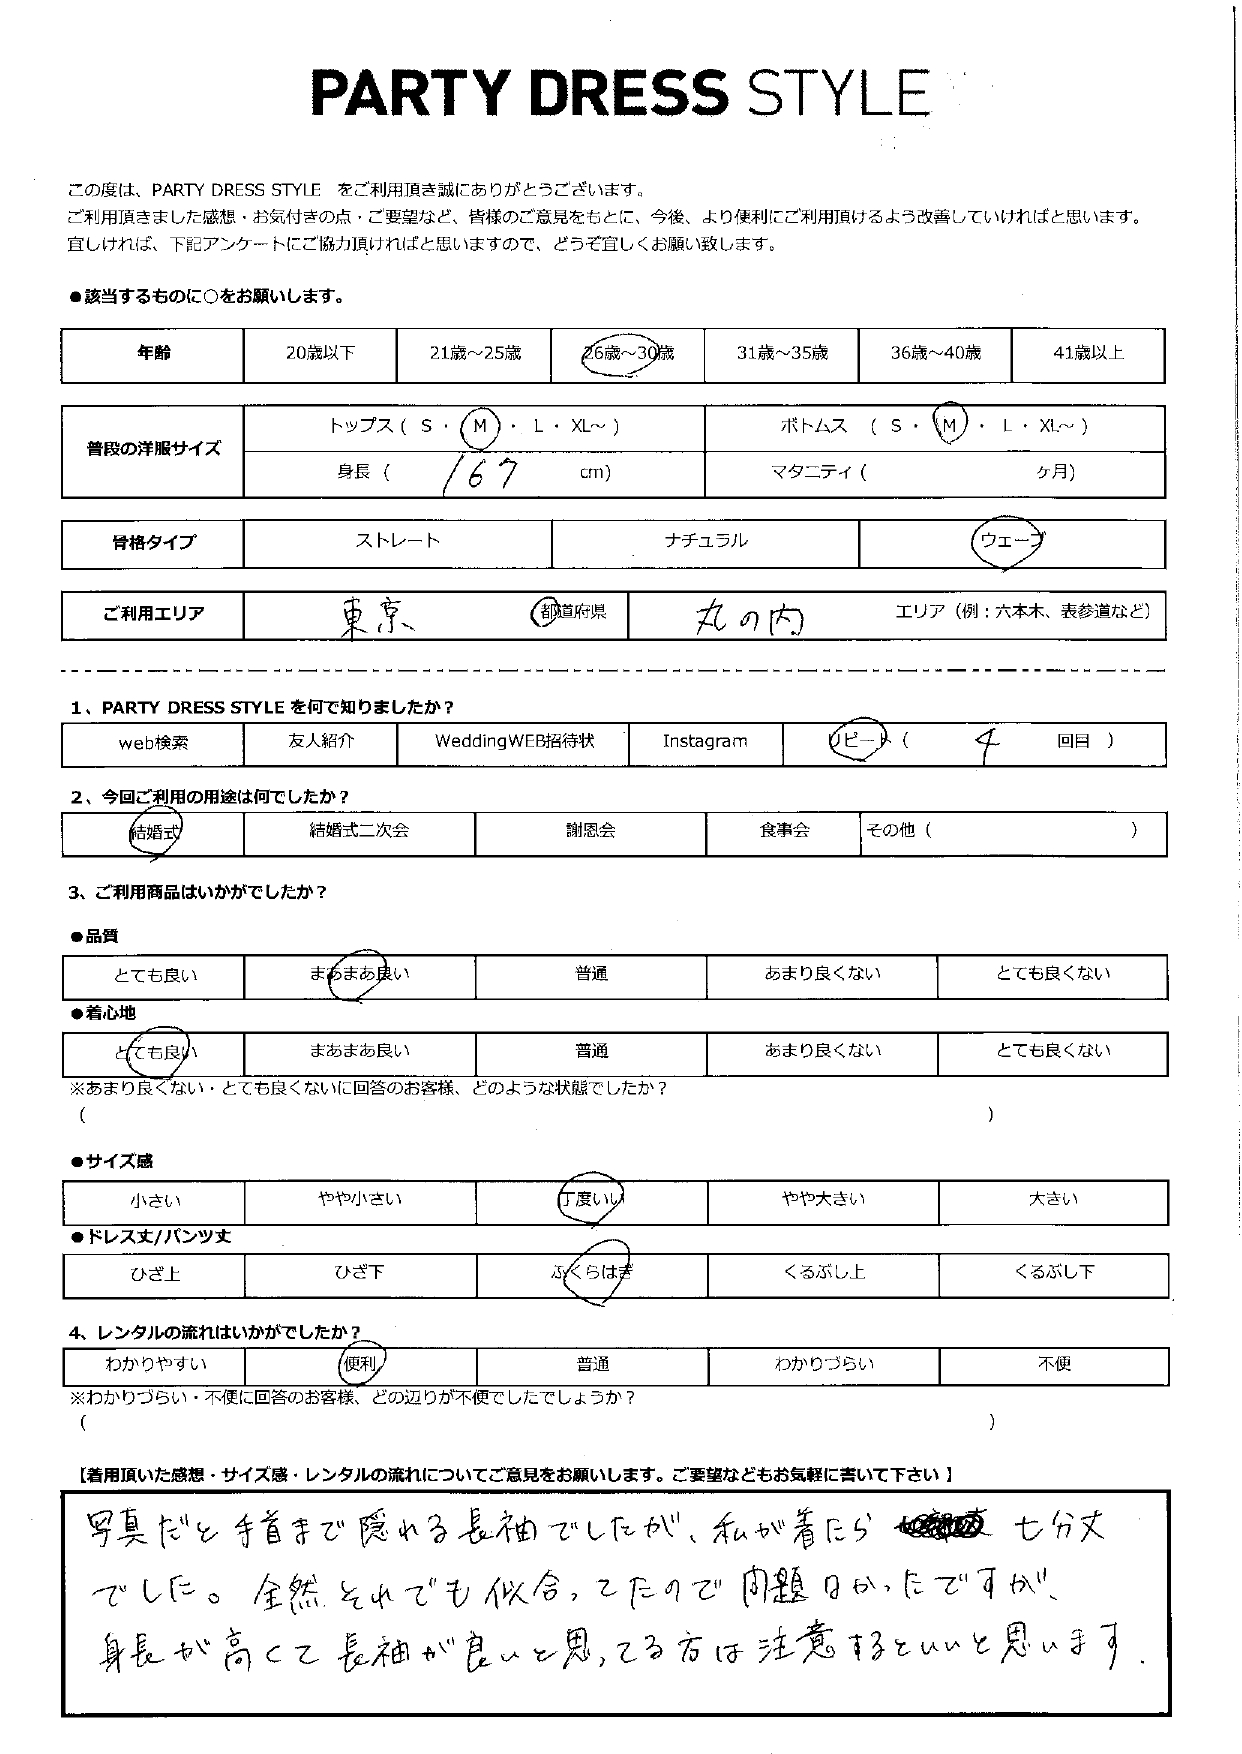 PARTY DRESS STYLE
この度は、PARTY DRESS STYLE をご利用頂き誠にありがとうございます。
ご利用頂きました感想・お気付きの点・ご要望など、皆様のご意見をもとに、今後、より便利にご利用頂けるよう改善していければと思います。
宜しければ、下記アンケートにご協力頂ければと思いますので、どうぞ宜しくお願い致します。
●該当するものに○をお願いします。
年齢 20歳以下 21歳～25歳 26歳～30歳 31歳～35歳 36歳～40歳 41歳以上
普段の洋服サイズ トップス ( S ・ M ・ L ・ XL～ ) ボトムス ( S ・ M ・ L ・ XL～ )
身長 ( 167 cm) マタニティ ( ヶ月)
骨格タイプ ストレート ナチュラル ウェーブ
ご利用エリア 東京 都道府県 丸の内 エリア（例：六本木、表参道など）
1、PARTY DRESS STYLE を何で知りましたか？
web検索 友人紹介 WeddingWEB招待状 Instagram リピート ( 4 回目 )
2、今回ご利用の用途は何でしたか？
結婚式 結婚式二次会 謝恩会 食事会 その他 ( )
3、ご利用商品はいかがでしたか？
●品質
とても良い まあまあ良い 普通 あまり良くない とても良くない
●着心地
とても良い まあまあ良い 普通 あまり良くない とても良くない
※あまり良くない・とても良くないに回答のお客様、どのような状態でしたか？
( )
●サイズ感
小さい やや小さい 丁度いい やや大きい 大きい
●ドレス丈/パンツ丈
ひざ上 ひざ下 ふくらはぎ くるぶし上 くるぶし下
4、レンタルの流れはいかがでしたか？
わかりやすい 便利 普通 わかりづらい 不便
※わかりづらい・不便に回答のお客様、どの辺りが不便でしたでしょうか？
( )
【着用頂いた感想・サイズ感・レンタルの流れについてご意見をお願いします。ご要望などもお気軽に書いて下さい 】
写真だと手首まで隠れる長袖でしたが、私が着たら 七分丈
でした。全然それでも似合ってたので問題なかったですが、
身長が高くて長袖が良いと思ってる方は注意するといいと思います.